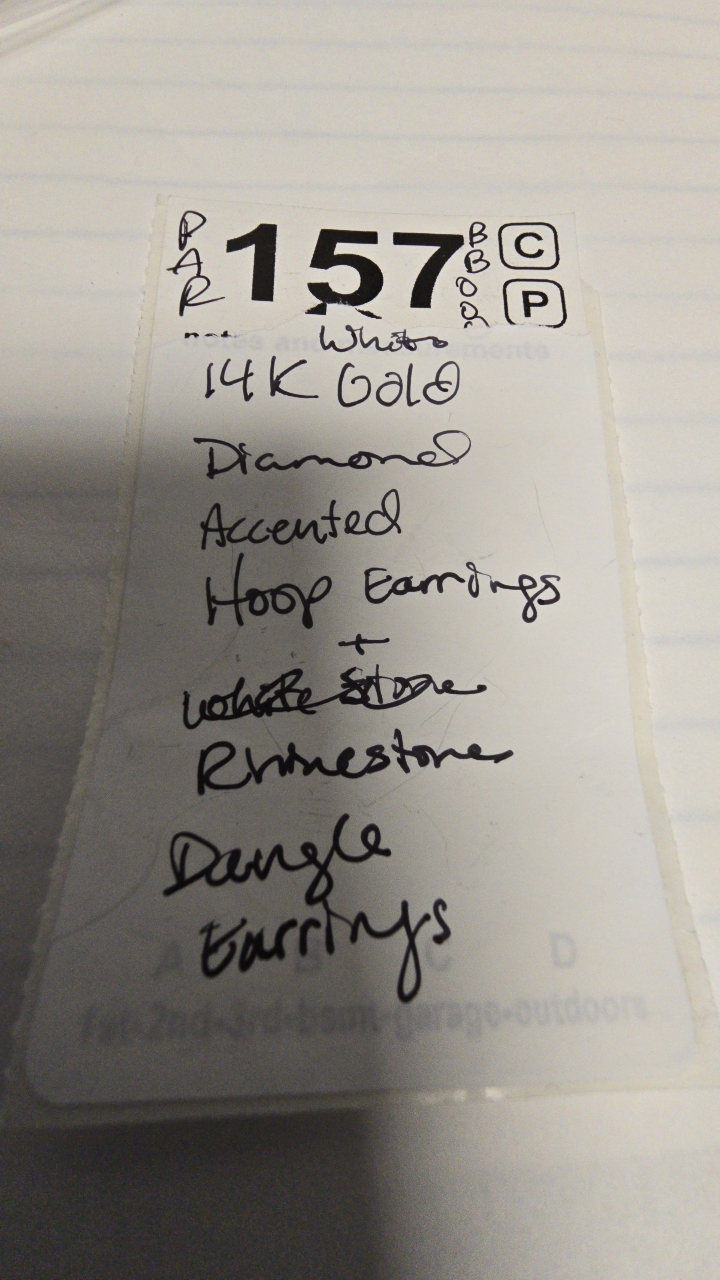 PAR 157 BBOOR C
P
notes and measurements
White
14K Gold
Diamond
Accented
Hoop Earrings
+
White Stone
Rhinestone
Dangle
Earrings
A B C D
1st-2nd-3rd-bsmt-garage-outdoors